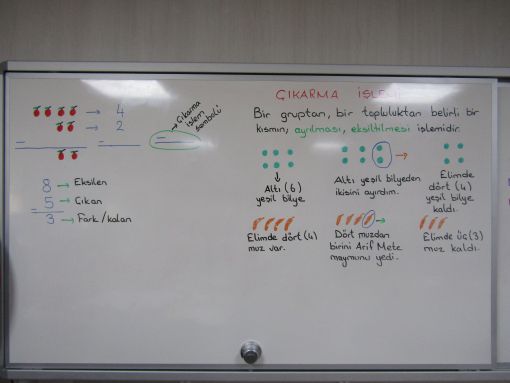 4
2
Çıkarma
işlem
sembolü
8 → Eksilen
5 → Çıkan
3 → Fark/kalan
ÇIKARMA İŞLEMİ
Bir gruptan, bir topluluktan belirli bir
kısmın, ayrılması, eksiltilmesi işlemidir.
Altı (6)
yeşil bilye
Altı yeşil bilyeden
ikisini ayırdım.
Elimde
dört (4)
yeşil bilye
kaldı.
Elimde dört (4)
muz var.
Dört muzdan
birini Arif Mete
maymunu yedi.
Elimde üç (3)
muz kaldı.